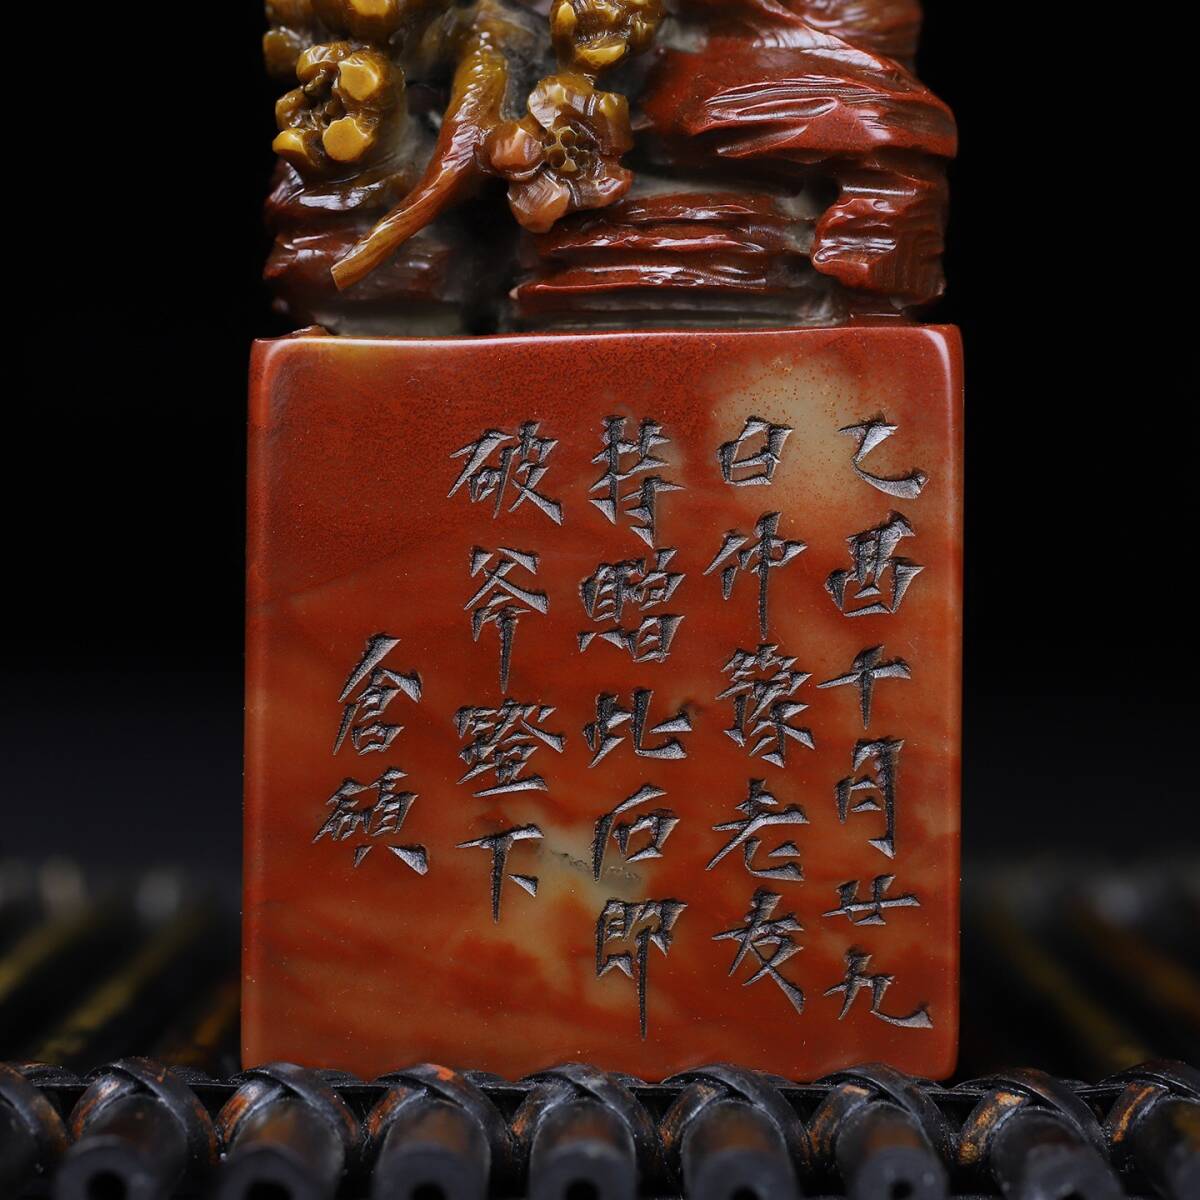 乙酉十月廿九
日仲豫老友
持贈此石即
破斧蹬下
倉碩